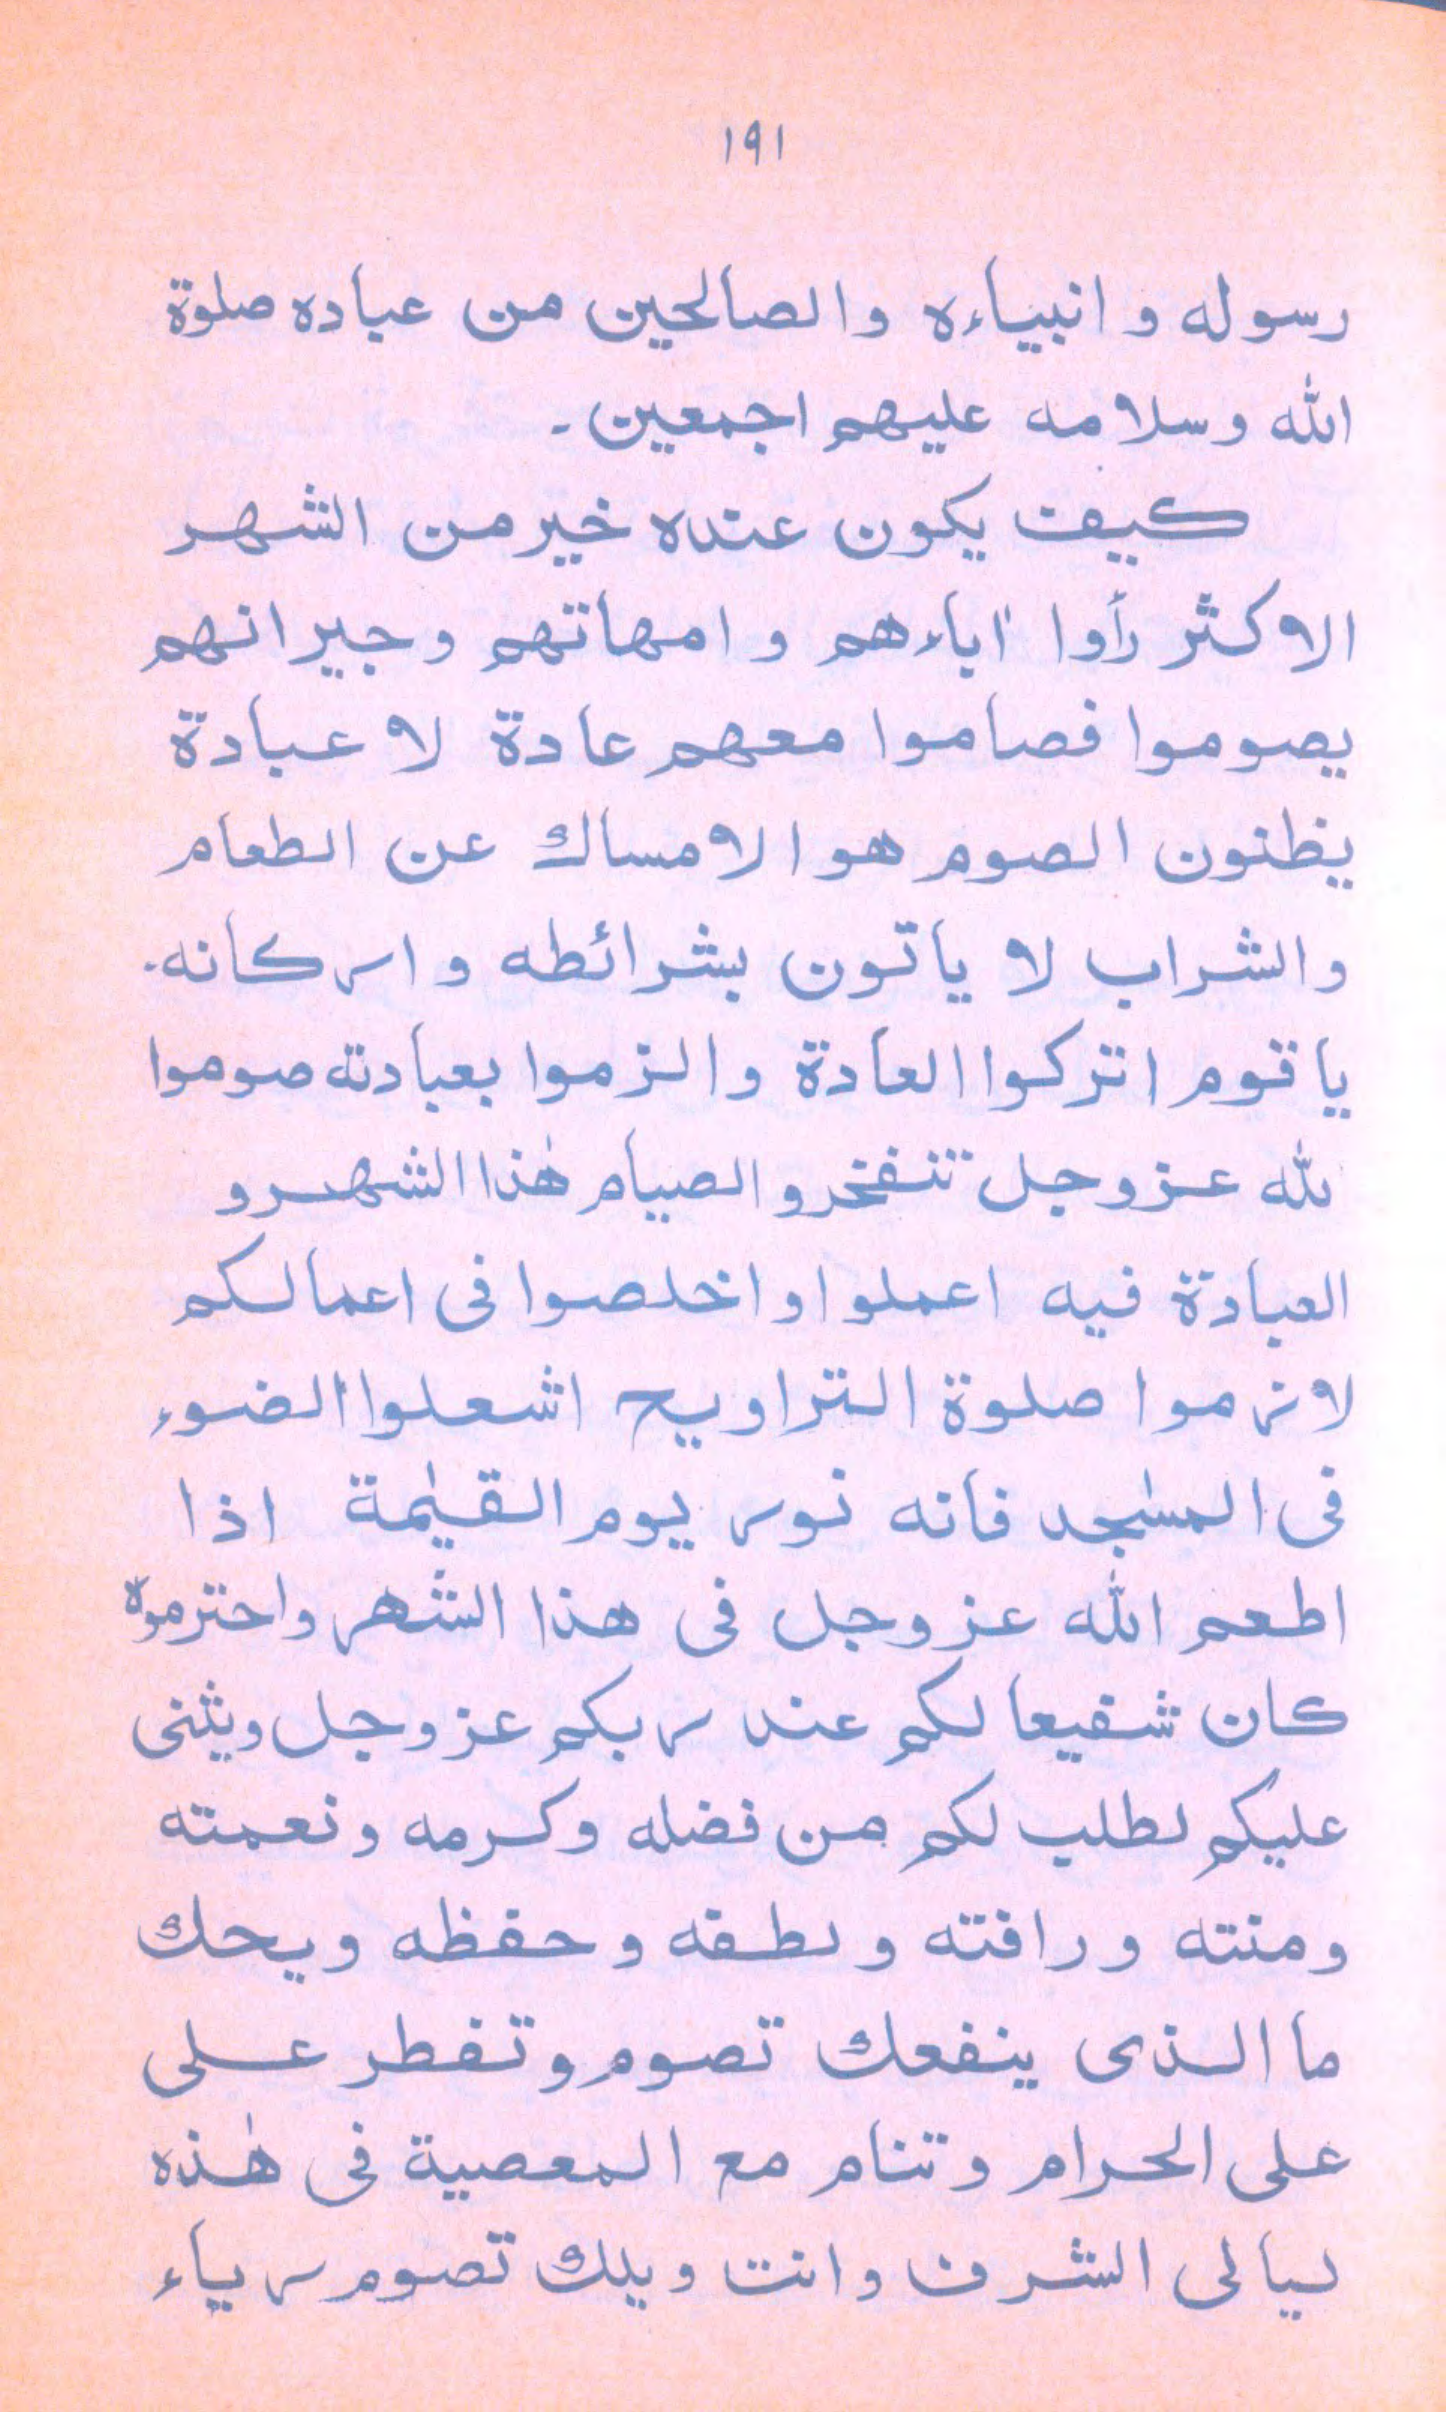 ١٩١
رسوله و انبیاءہ والصالحین من عباده صلوة
الله وسلامه علیهم اجمعین۔
کیف یکون عنده خیر من الشهر
الاکثر رأوا اٰباءهم و امهاتهم و جیرانهم
یصوموا فصاموا معهم عادة لا عبادة
یظنون الصوم هو الامساك عن الطعام
والشراب لا یاتون بشرائطه و ارکانه۔
یا قوم اترکوا العادة والزموا بعبادته صوموا
لله عز وجل تنفخروا لصیام هٰذا الشهر و
العبادة فیه اعملوا واخلصوا فی اعمالکم
لازموا صلوة التراویح اشعلوا الضوء
فی المسٰجد فانه نور یوم القیٰمة اذا
اطعم الله عز وجل فی هذا الشهر واحترموه
کان شفیعا لکم عند ربکم عز وجل ویثنی
علیکم لطلب لکم من فضله وکرمه و نعمته
ومنته و رافته و لطفه و حفظه ویحك
ما الذی ینفعك تصوم و تفطر علی
علی الحرام و تنام مع المعصیة فی هٰذه
لیالی الشرف و انت ویلك تصوم ریاء